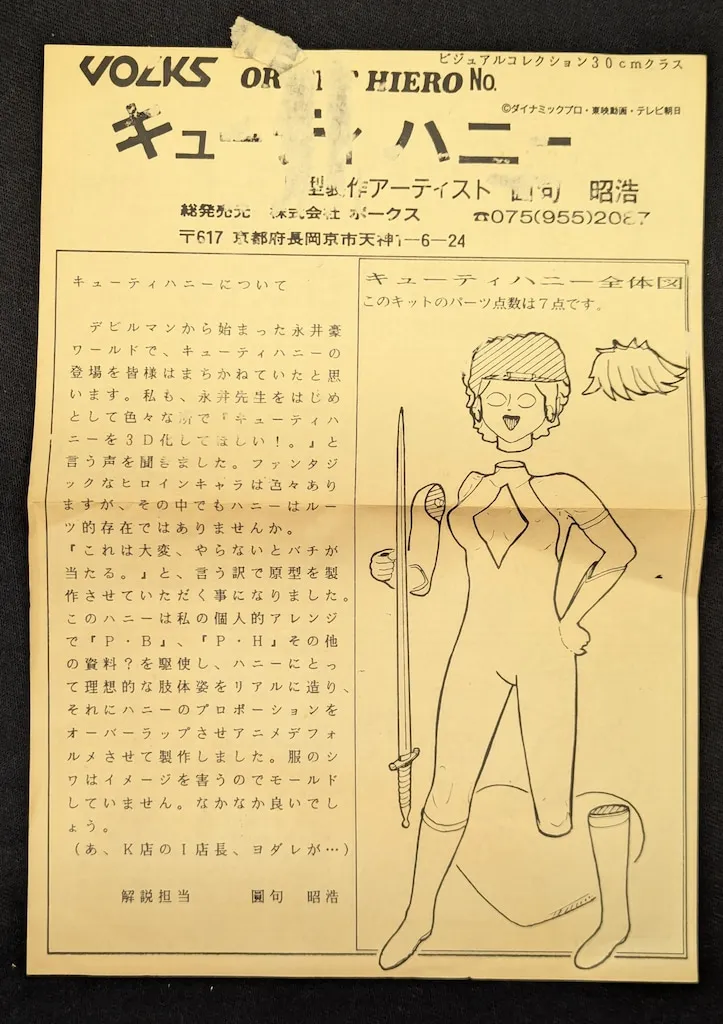 VOLKS
ビジュアルコレクション30cmクラス
HIERO No.
©ダイナミックプロ・東映動画・テレビ朝日
キューティハニー
型製作アーティスト 圓句 昭浩
総発売元 株式会社 ボークス ☎075(955)2087
〒617 京都府長岡京市天神1-6-24
キューティハニーについて
デビルマンから始まった永井豪
ワールドで、キューティハニーの
登場を皆様はまちかねていたと思
います。私も、永井先生をはじめ
として色々な所で『キューティハ
ニーを3D化してほしい！。』と
言う声を聞きました。ファンタジ
ックなヒロインキャラは色々あり
ますが、その中でもハニーはルー
ツ的存在ではありませんか。
『これは大変、やらないとバチが
当たる。』と、言う訳で原型を製
作させていただく事になりました。
このハニーは私の個人的アレンジ
で『P・B』、『P・H』その他
の資料？を駆使し、ハニーにとっ
て理想的な肢体姿をリアルに造り、
それにハニーのプロポーションを
オーバーラップさせアニメデフォ
ルメさせて製作しました。服のシ
ワはイメージを害うのでモールド
していません。なかなか良いでし
ょう。
(あ、K店のI店長、ヨダレが…)
解説担当 圓句 昭浩
キューティハニー全体図
このキットのパーツ点数は7点です。